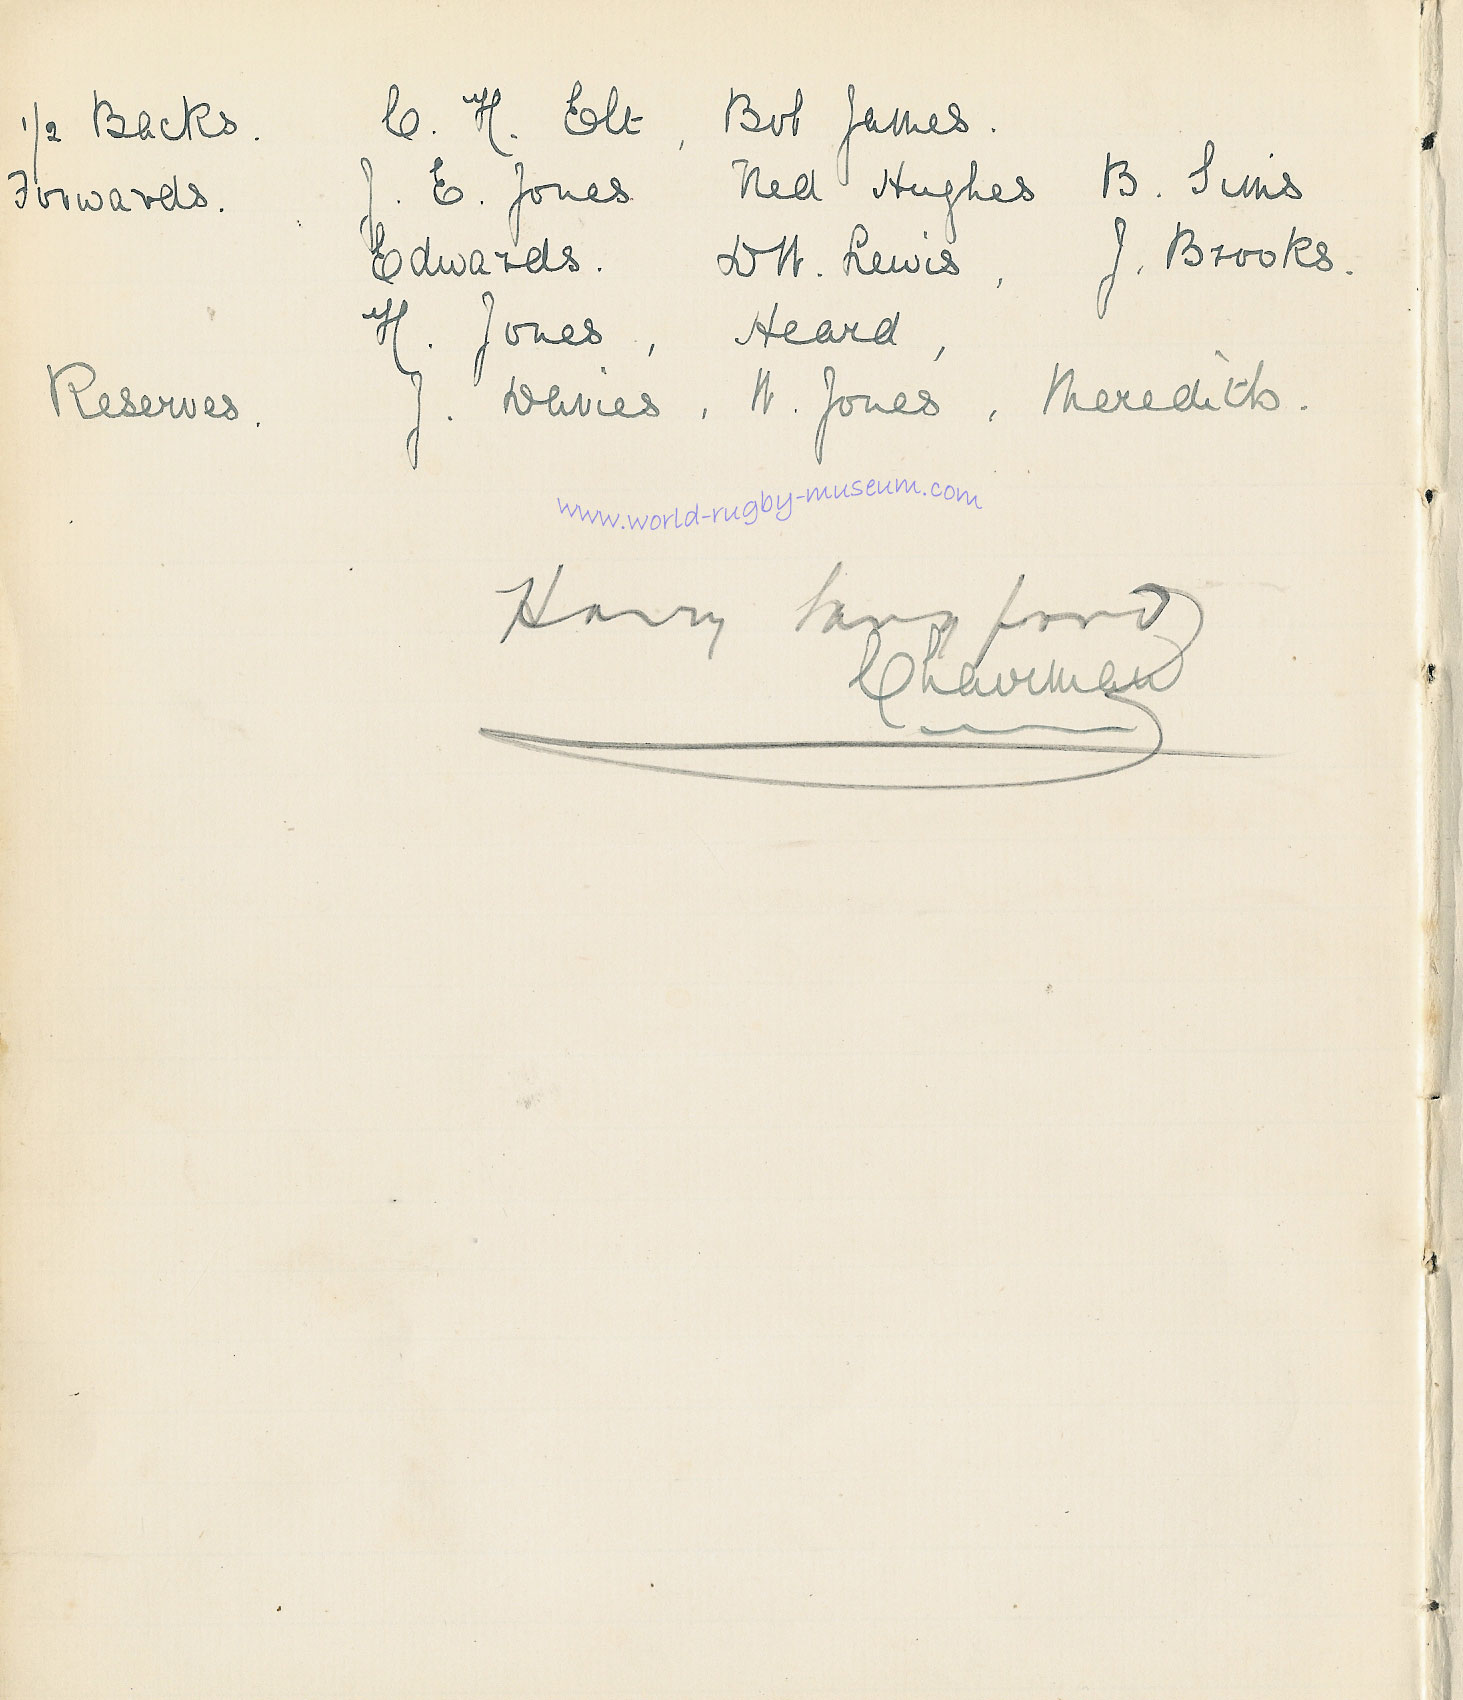 1/2 Backs. C. H. Elt, Bob James.
Forwards. J. E. Jones Ned Hughes B. Sims
Edwards. D W. Lewis, J. Brooks.
H. Jones, Heard,
Reserves. J. Davies, W. Jones, Meredith.
www.world-rugby-museum.com
Harry Langford
Chairman